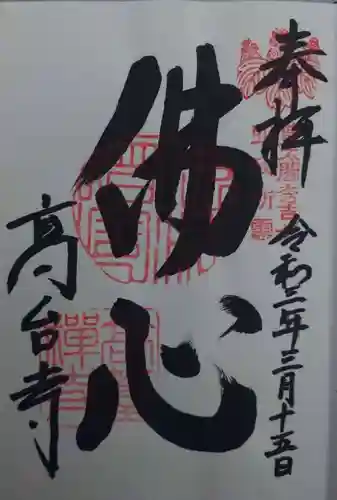 奉拝
令和三年三月十五日
佛心
高台寺